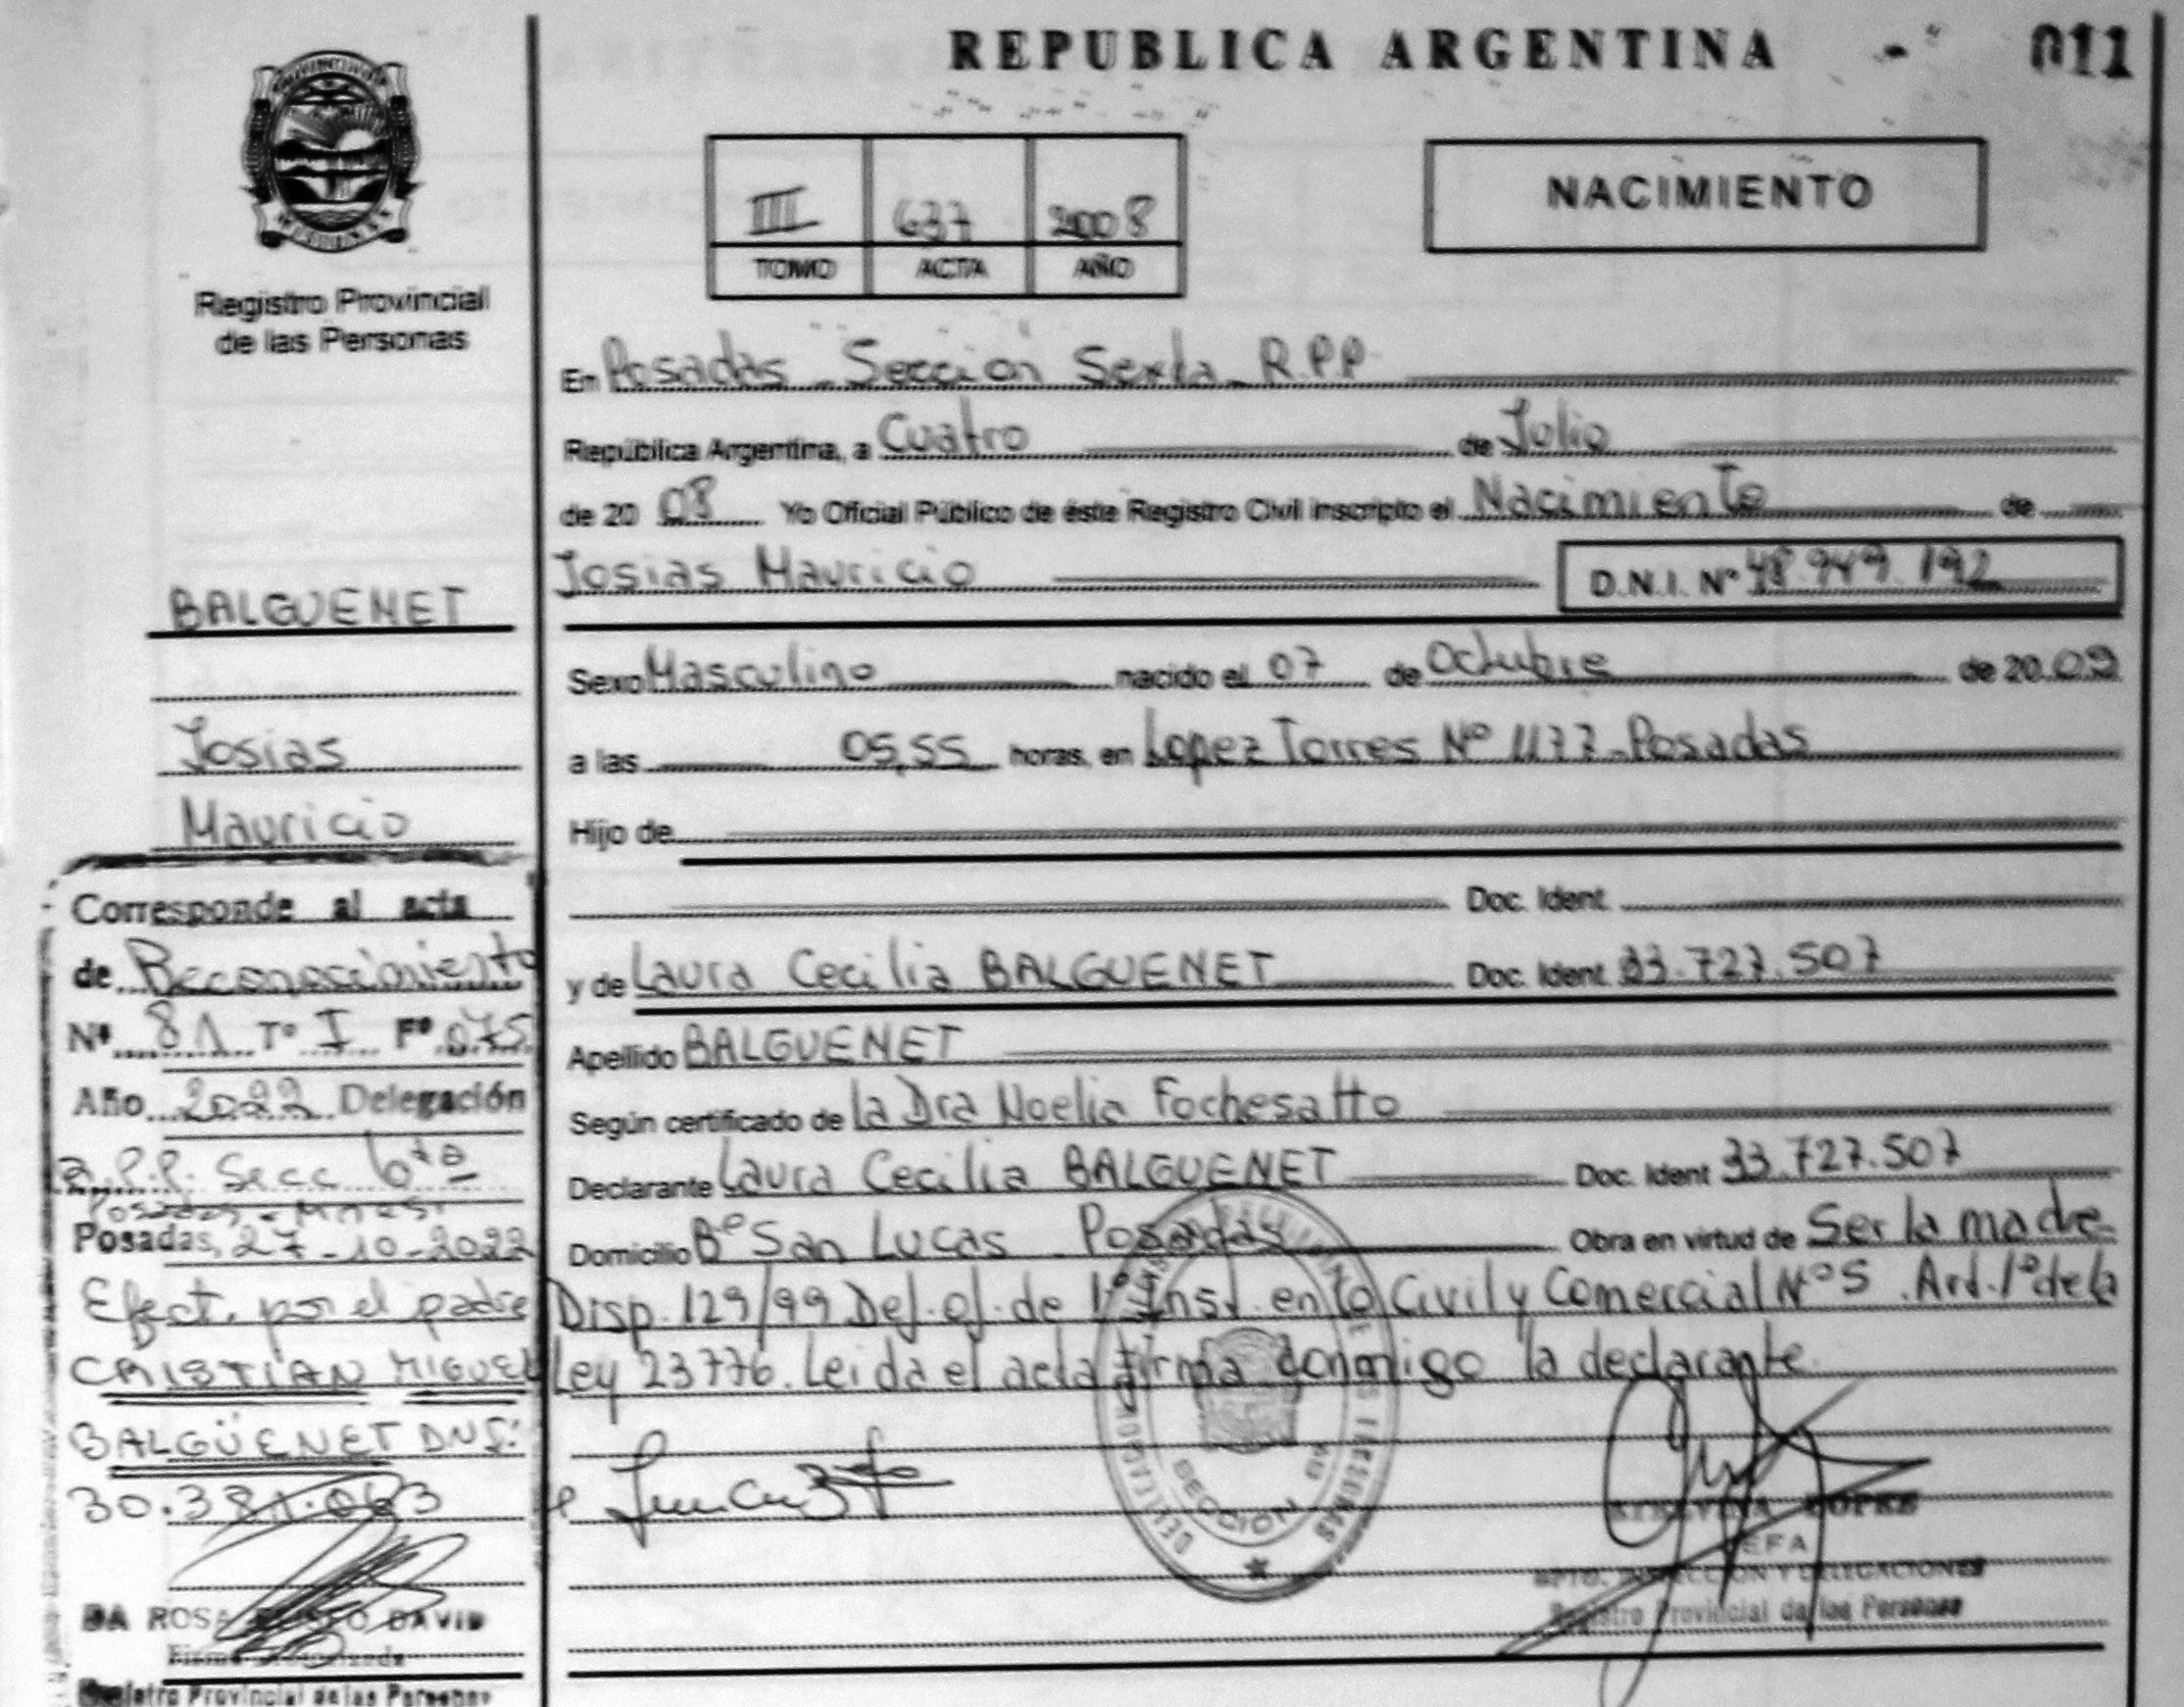 REPUBLICA ARGENTINA
011
III 637 2008
TOMO ACTA AÑO
NACIMIENTO
Registro Provincial
de las Personas
En Posadas Seccion Sexta R.P.P
República Argentina, a Cuatro de Julio
de 20 08 Yo Oficial Público de éste Registro Civil inscripto el Nacimiento de
Josias Mauricio D.N.I. Nº 48.949.192
Sexo Masculino nacido el 07 de Octubre de 20 09
a las 05,55 horas, en Lopez Torres Nº 1177 - Posadas
Hijo de
Doc. Ident.
y de Laura Cecilia BALGUENET Doc. Ident 33.727.507
Apellido BALGUENET
Según certificado de la Dra Noelia Fochesatto
Declarante Laura Cecilia BALGUENET Doc. Ident 33.727.507
Domicilio Bº San Lucas Posadas Obra en virtud de Ser la madre
Disp. 129/99 Def. of. de 1º Inst. en lo Civil y Comercial Nº 5 . Ard. 1º de la
Ley 23776. Leida el acta firma conmigo la declarante.
LOPEZ
JEFA
DPTO. INSPECCION Y DELEGACIONES
Registro Provincial de las Personas
BALGUENET
Josias
Mauricio
Corresponde al acta
de Reconocimiento
Nº 81 Tº I Fº 075
Año 2022 Delegación
R.P.P. Secc 6ta
Posadas -
Posadas, 27-10-2022
Efect. por el padre
CRISTIAN MIGUEL
BALGÜENET DNI:
30.381.063
DA ROSA DAVID
Firma
Registro Provincial de las Personas